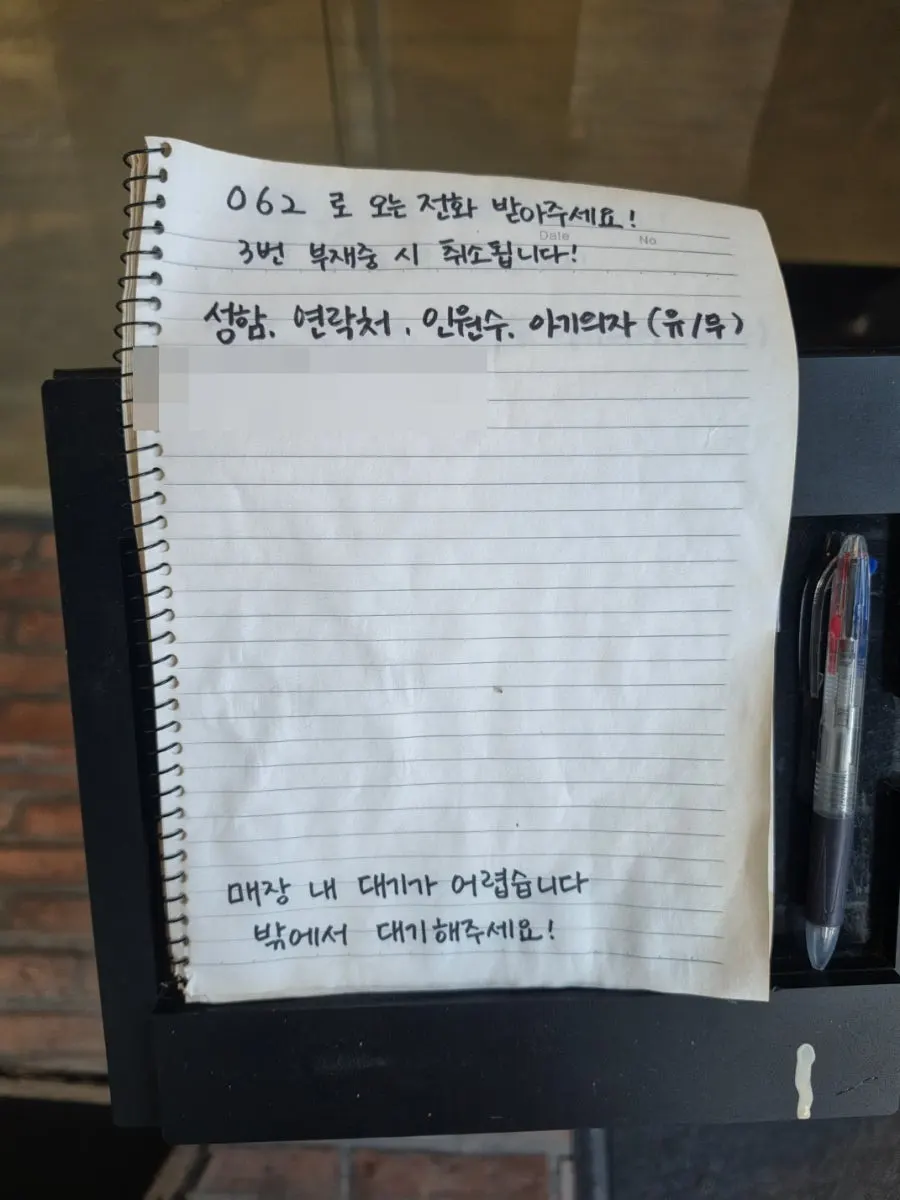 062 로 오는 전화 받아주세요!
Date No
3번 부재중 시 취소됩니다!
성함, 연락처, 인원수, 아기의자 (유/무)
매장 내 대기가 어렵습니다
밖에서 대기해주세요!